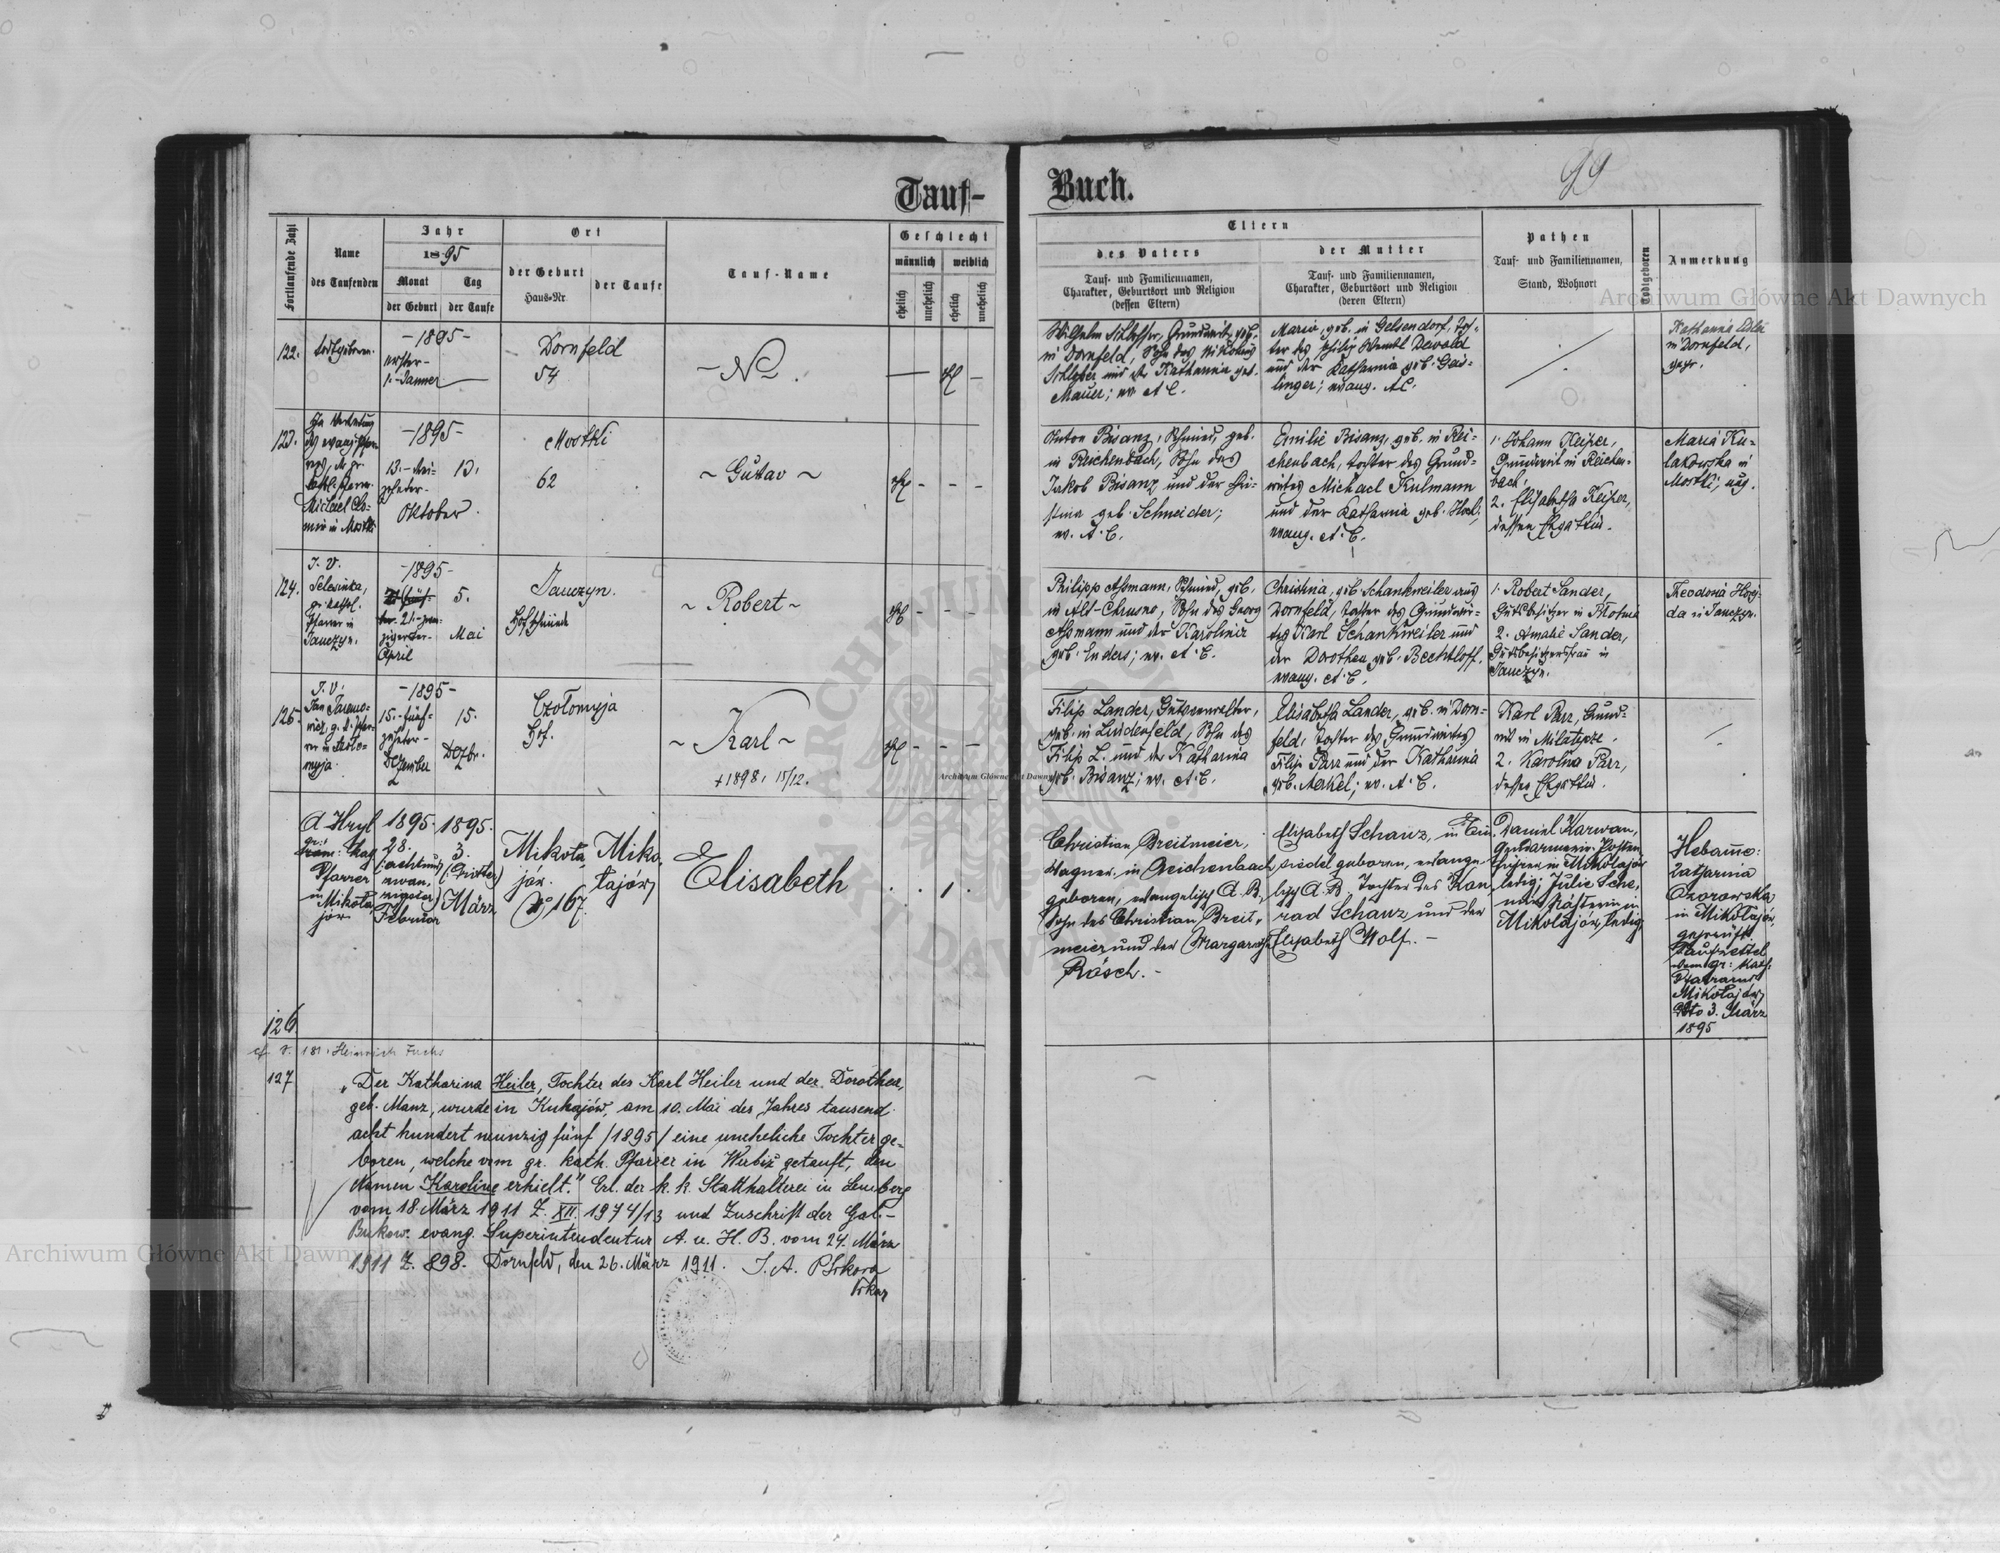 Tauf-
Buch.
99
Fortlaufende Zahl
Name
des Taufenden
Jahr
1895
Monat
der Geburt
Tag
der Taufe
Ort
der Geburt
Haus-Nr.
der Taufe
Tauf-Name
Geschlecht
männlich
weiblich
ehelich
unehelich
ehelich
unehelich
Eltern
des Vaters
Tauf- und Familiennamen,
Charakter, Geburtsort und Religion
(dessen Eltern)
der Mutter
Tauf- und Familiennamen,
Charakter, Geburtsort und Religion
(deren Eltern)
Pathen
Tauf- und Familiennamen,
Stand, Wohnort
Todtgeboren
Anmerkung
122.
todtgeboren.
-1895-
erster-
1.-Jänner
Dornfeld
54
Wilhelm Schlosser, Grundwirt, geb.
in Dornfeld, Sohn des Nikolaus
und der Katharina geb.
Mauer; ev. A C.
Maria, geb. in Gelsendorf, Toch-
ter des Philip Dewald
und der Katharina geb. Gas-
linger; evang. A.C.
Katharina
in Dornfeld,
gepr.
123.
-1895-
13.-drei-
zehnter-
Oktober.
13.
Mostki
62
~ Gustav ~
Anton Bisanz, Schmied, geb.
in Reichenbach, Sohn des
Jakob Bisanz und der Chri-
stina geb. Schneider;
ev. A. C.
Emilie Bisanz, geb. in Rei-
chenbach, Tochter des Grund-
wirtes Michael Kulmann
und der Katharina geb. Hoch;
evang. A. C.
1. Johann Keiper,
Grundwirt in Reichen-
bach.
2. Elisabetha Keiper,
dessen Ehgattin.
Maria Ku-
lakowska in
Mostki; ung.
124.
J. V.
gr. kathl.
Pfarrer in
Janczyn.
-1895-
21.-zwan-
zigerster-
April
5.
Mai
Janczyn.
Hofschmiede
~ Robert ~
Philipp Assmann, Schmied, geb.
in Alt-Chrusno, Sohn des Georg
Assmann und der Karolina
geb. Enders; ev. A. C.
Christina, geb. Schankweiler aus
Dornfeld, Tochter des Grundwir-
tes Karl Schankweiler und
der Dorothea, geb. Bechtloff.
evang. A. C.
1. Robert Sander,
Gutsbesitzer in
2. Amalie Sander,
Gutsbesitzersfrau in
Janczyn.
Theodora
da in Janczyn.
125.
J. V.
-1895-
15.-fünf-
zehnter-
Dezember
15.
Dezbr.
Czołomyja
Hof.
~ Karl ~
+ 1898, 15/12.
Filip Lander, Gutsverwalter,
geb. in Lindenfeld, Sohn des
Filip L. und der Katharina
geb. Bisanz; ev. A. C.
Elisabetha Lander, geb. in Dorn-
feld, Tochter des Grundwirtes
Filip Parr und der Katharina
geb. Merkel; ev. A. C.
Karl Parr, Grund-
wirt in
2. Karolina Parr,
dessen Ehgattin.
126
A Hryl
Pfarrer
in
Mikoła
jów
1895.
28.
(achtund
zwan,
zigster)
Februar
1895.
3.
(Dritter)
März
Mikoła
jów.
No 167.
Miko,
łajów
Elisabeth
Christian Breitmeier,
Wagner, in Reichenbach
geboren, evangelisch A. B.,
Sohn des Christian Breit,
meier und der Margareth
Rösch. -
Elisabeth Schanz, in Ein,
siedel geboren, evange-
lisch A. B. Tochter des Kon
rad Schanz und der
Elisabeth Wolf. -
Daniel Karwan,
Gendarmerie-Posten,
führer in Mikołajów
ledig; Julie Sche,
in
Mikołajów, ledig.
Hebamme:
Katharina
Ozorowska
in Mikołajów,
geprüft
Taufzettel
vom gr: kath:
Pfarramt
Mikołajów
dto 3. März
1895
cf v. 181. Heinrich Fuchs
127
„Der Katharina Heiler, Tochter des Karl Heiler und der Dorothea,
geb. Manz, wurde in Kuhajów, am 10. Mai des Jahres tausend
acht hundert neunzig fünf /1895/ eine uneheliche Tochter ge-
boren, welche vom gr. kath. Pfarrer in Wierbiż getauft, den
Namen Karoline erhielt." Erl. der k. k. Statthalterei in Lemberg
vom 18. März 1911 Z. XII. 1974/13 und Zuschrift der Gal.-
Bukow. evang. Superintendentur A. u. H. B. vom 24. März
1911 Z. 898. Dornfeld, den 26. März 1911. J. A.
Vikar
Archiwum Główne Akt Dawnych
Archiwum Główne Akt Dawnych
Archiwum Główne Akt Dawnych